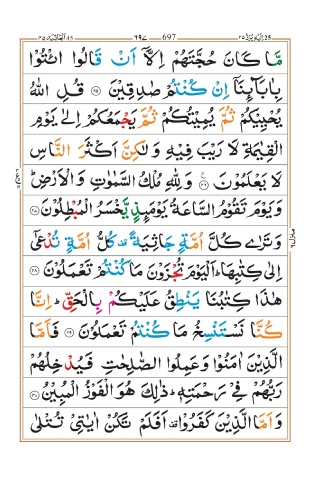 ٦٩٧ 697
مَّا كَانَ حُجَّتَهُمْ اِلَّاۤ اَنْ قَالُوا ائْتُوْا
بِاٰبَآئِنَاۤ اِنْ كُنْتُمْ صٰدِقِيْنَ ۝٢٥ قُلِ اللّٰهُ
يُحْيِيْكُمْ ثُمَّ يُمِيْتُكُمْ ثُمَّ يَجْمَعُكُمْ اِلٰى يَوْمِ
الْقِيٰمَةِ لَا رَيْبَ فِيْهِ وَلٰكِنَّ اَكْثَرَ النَّاسِ
لَا يَعْلَمُوْنَ ۝٢٦ وَلِلّٰهِ مُلْكُ السَّمٰوٰتِ وَالْاَرْضِؕ
وَيَوْمَ تَقُوْمُ السَّاعَةُ يَوْمَئِذٍ يَّخْسَرُ الْمُبْطِلُوْنَ ۝٢٧
وَتَرٰى كُلَّ اُمَّةٍ جَاثِيَةً ۫ كُلُّ اُمَّةٍ تُدْعٰۤى
اِلٰى كِتٰبِهَاؕ اَلْيَوْمَ تُجْزَوْنَ مَا كُنْتُمْ تَعْمَلُوْنَ ۝٢٨
هٰذَا كِتٰبُنَا يَنْطِقُ عَلَيْكُمْ بِالْحَقِّؕ اِنَّا
كُنَّا نَسْتَنْسِخُ مَا كُنْتُمْ تَعْمَلُوْنَ ۝٢٩ فَاَمَّا
الَّذِيْنَ اٰمَنُوْا وَعَمِلُوا الصّٰلِحٰتِ فَيُدْخِلُهُمْ
رَبُّهُمْ فِيْ رَحْمَتِهٖؕ ذٰلِكَ هُوَ الْفَوْزُ الْمُبِيْنُ ۝٣٠
وَاَمَّا الَّذِيْنَ كَفَرُوْا ۫ اَفَلَمْ تَكُنْ اٰيٰتِيْ تُتْلٰى